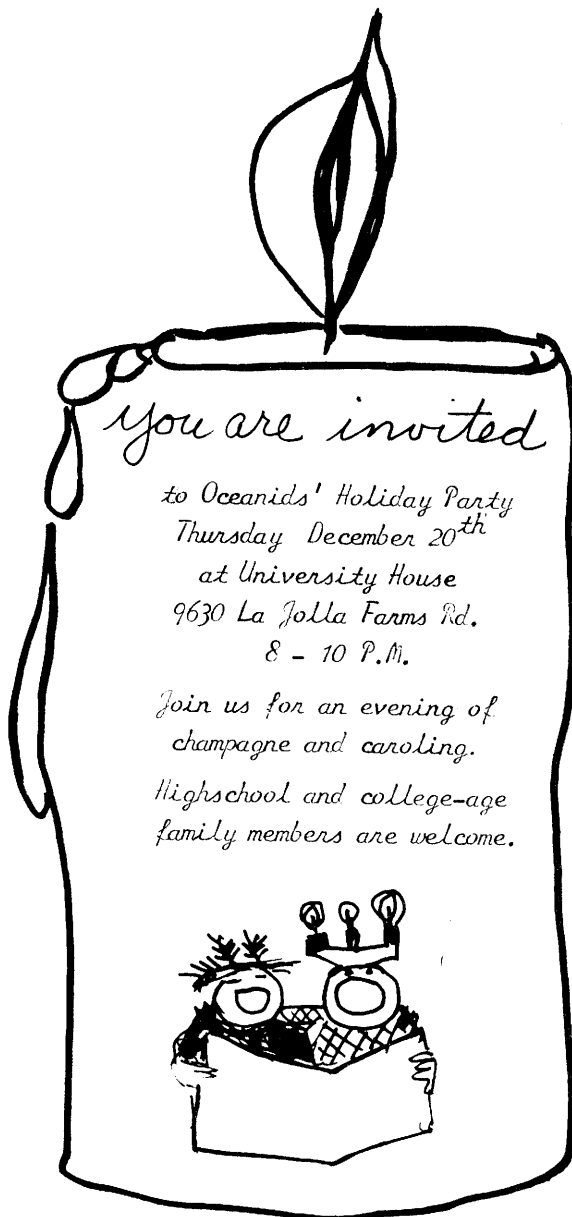 you are invited
to Oceanids' Holiday Party
Thursday December 20th
at University House
9630 La Jolla Farms Rd.
8 - 10 P.M.
Join us for an evening of
champagne and caroling.
Highschool and college-age
family members are welcome.